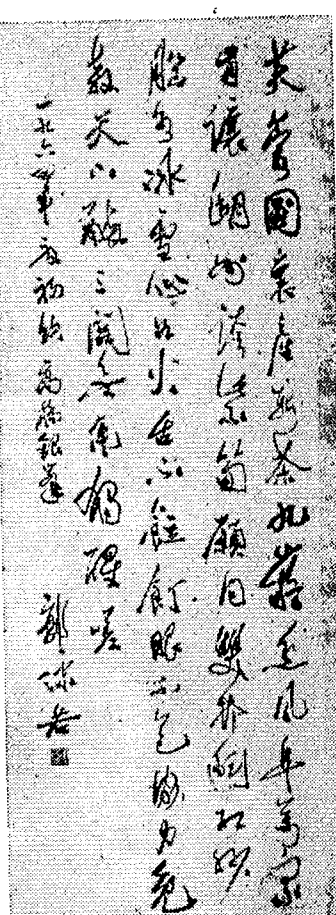 芙蓉國裏產新茶九嶷香風阜萬家
肯讓湖州誇紫筍願同雙井鬥紅紗
腦如冰雪心如火舌不餖飣眼不花協力免
教天下醉三閭無庸獨醒嗟
一九六四年夏初飲高橋銀峯 郭沫若